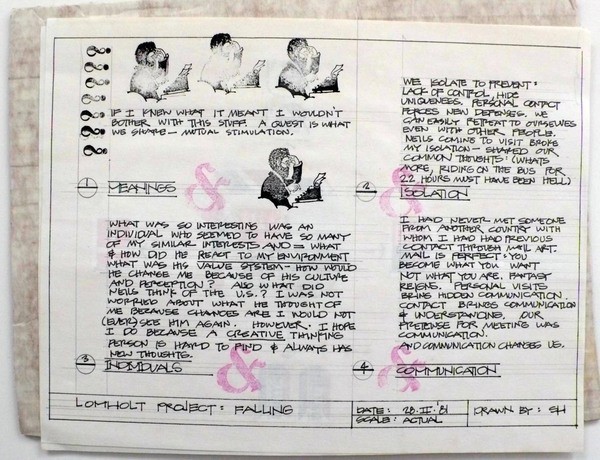 IF I KNEW WHAT IT MEANT I WOULDN'T
BOTHER WITH THIS STUFF. A QUEST IS WHAT
WE SHARE — MUTUAL STIMULATION.
1 MEANINGS
WE ISOLATE TO PREVENT:
LACK OF CONTROL, HIDE
UNIQUENESS. PERSONAL CONTACT
FORCES NEW DEFENSES. WE
CAN EASILY RETREAT TO OURSELVES
EVEN WITH OTHER PEOPLE.
NEILS COMING TO VISIT BROKE
MY ISOLATION — SHARED OUR
COMMON THOUGHTS! (WHATS
MORE, RIDING ON THE BUS FOR
22 HOURS MUST HAVE BEEN HELL)
2 ISOLATION
WHAT WAS SO INTERESTING WAS AN
INDIVIDUAL WHO SEEMED TO HAVE SO MANY
OF MY SIMILAR INTERESTS AND = WHAT
& HOW DID HE REACT TO MY ENVIRONMENT
WHAT WAS HIS VALUE SYSTEM — HOW WOULD
HE CHANGE ME BECAUSE OF HIS CULTURE
AND PERCEPTION? ALSO WHAT DID
NEILS THINK OF THE U.S.? I WAS NOT
WORRIED ABOUT WHAT HE THOUGHT OF
ME BECAUSE CHANCES ARE I WOULD NOT
(EVER) SEE HIM AGAIN. HOWEVER, I HOPE
I DO BECAUSE A CREATIVE THINKING
PERSON IS HARD TO FIND & ALWAYS HAS
NEW THOUGHTS.
3 INDIVIDUALS
I HAD NEVER MET SOMEONE
FROM ANOTHER COUNTRY WITH
WHOM I HAD HAD PREVIOUS
CONTACT THROUGH MAIL ART.
MAIL IS PERFECT: YOU
BECOME WHAT YOU WANT
NOT WHAT YOU ARE. FANTASY
REIGNS. PERSONAL VISITS
BRING HIDDEN COMMUNICATION.
CONTACT BRINGS COMMUNICATION
& UNDERSTANDING. OUR
PRETENSE FOR MEETING WAS
COMMUNICATION.
AND COMMUNICATION CHANGES US.
4 COMMUNICATION
LOMHOLT PROJECT: FALLING
DATE: 28.II.'81
SCALE: ACTUAL
DRAWN BY: SH